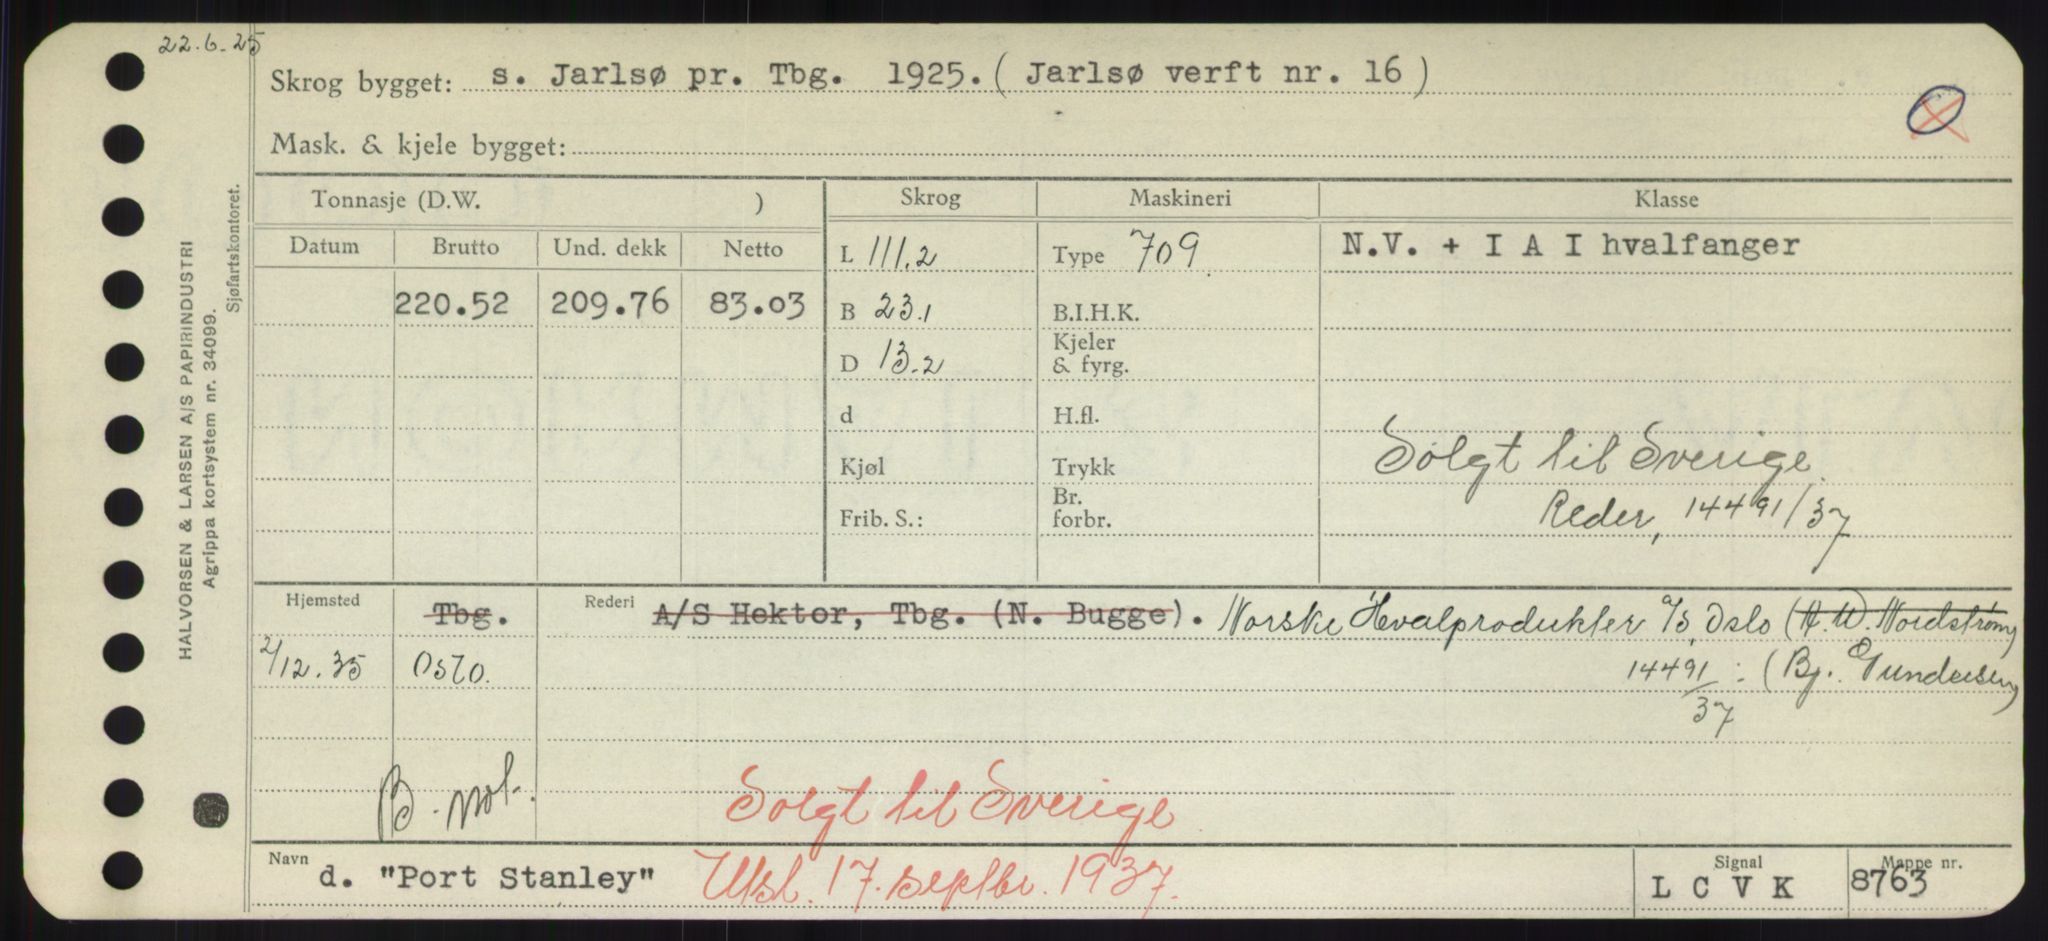 22.6.25
Skrog bygget: s. Jarlsø pr. Tbg. 1925. (Jarlsø verft nr. 16)
Mask. & kjele bygget:
HALVORSEN & LARSEN A/S PAPIRINDUSTRI
Agrippa kortsystem nr. 34099.
Sjøfartskontoret.
Tonnasje (D.W. ) Skrog Maskineri Klasse
Datum Brutto Und. dekk Netto L 111.2 Type 709. N.V. + I A I hvalfanger
220.52 209.76 83.03 B 23.1 B.I.H.K.
D 13.2 Kjeler & fyrg.
d H.fl.
Kjøl Trykk Solgt til Sverige
Frib. S.: Br. forbr. Reder, 14491/37
Hjemsted Tbg. Rederi A/S Hektor, Tbg. (N. Bugge). Norske Hvalprodukter a/s, Oslo (H.W. Nordstrøm)
2/12.35 Oslo. 14491/37 : (Bj. Gundersen)
B. Solgt til Sverige
Navn d. "Port Stanley" Utsl. 17. septbr. 1937. Signal L C V K Mappe nr. 8763